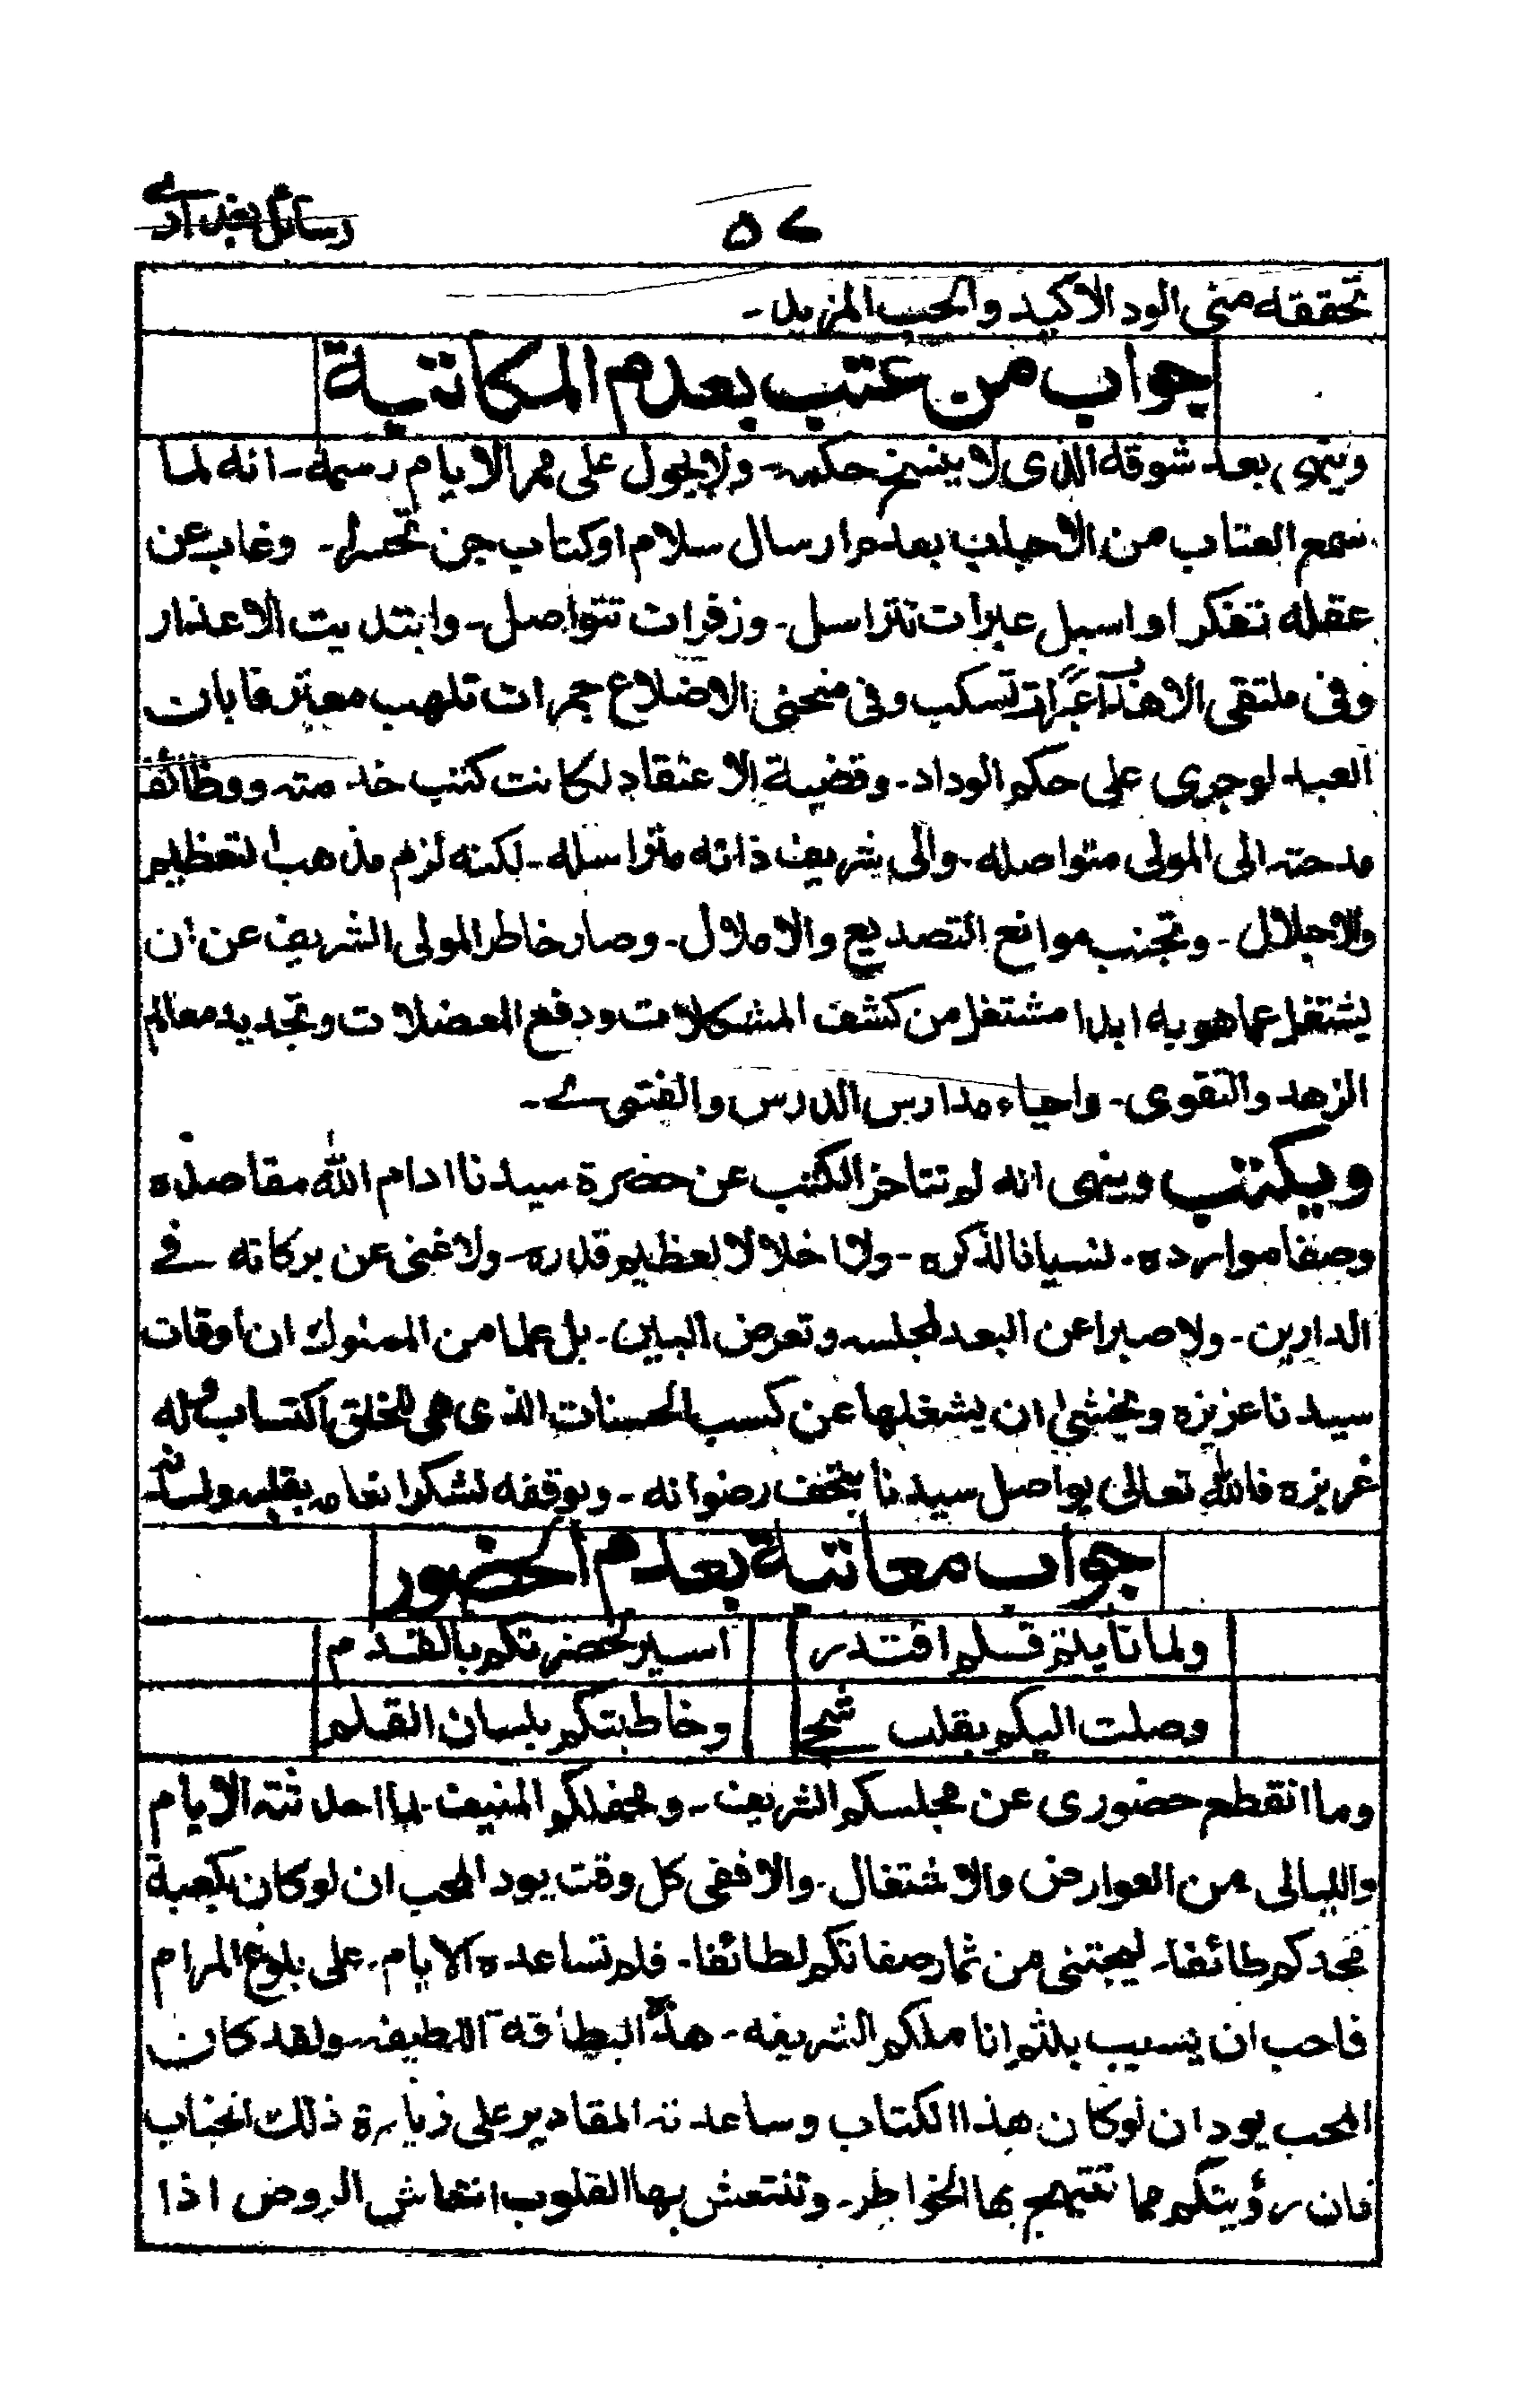 رسائل بغدادی
۵۷
تحققه منی الود الاکید والحب المزید۔
جواب من عتب بعدم المکاتبة
وینهی بعد شوقه الذی لا ینسخ حکمه۔ ولا یحول علی ممر الایام رسمه۔ انه لما
سمع العتاب من الاحباب بعدم ارسال سلام او کتاب جن تحسرا۔ وغاب عن
عقله تفکرا واسبل عبرات تتراسل۔ وزفرات تتواصل۔ وابتدیت الاعذار
وفی ملتقی الاهداب عبرات تسکب وفی منحنی الاضلاع جمرات تلهب معترفا بان
العبد لوجری علی حکم الوداد۔ وقضیة الاعتقاد لکانت کتب خدمته ووظائف
مدحته الی المولی متواصله۔ والی شریف ذاته متراسله۔ لکنه لزم مذهب التعظیم
والاجلال۔ وتجنب مواقع التصدیع والاملال۔ وصار خاطر المولی الشریف عن ان
یشتغل عما هو به ابدا مشتغل من کشف المشکلات ودفع المعضلات وتجدید معالم
الزهد والتقوی۔ واحیاء مدارس الدرس والفتوی۔
ویکتب وینهی انه لم تتاخر الکتب عن حضرة سیدنا ادام الله مقاصده
وصفا موارده۔ نسیانا لذکره۔ ولا اخلالا لعظیم قدره۔ ولا غنی عن برکاته فی
الدارین۔ ولا صبرا عن البعد لمجلسه وتعرض البین۔ بل علما من المملوک ان اوقات
سیدنا عزیزه ویخشی ان یشغلها عن کسب الحسنات الذی هی للخلق اکتساب وله
غریزه فالله تعالی یواصل سیدنا بتحف رضوانه۔ ویوقفه لشکر انعامه بقلبه ولسانه
جواب معاتبة بعدم الحضور
ولما نأیتم فلم اقتدر اسیر لحضرتکم بالقدم
وصلت الیکم بقلب شجی وخاطبتکم بلسان القلم
وما انقطع حضوری عن مجلسکم الشریف۔ ومحفلکم المنیف۔ لما احدثته الایام
واللیالی من العوارض والاشتغال۔ والا ففی کل وقت یود المحب ان لوکان بکعبة
مجدکم طائفا۔ لیجتنی من ثمار صفاتکم لطائفا۔ فلم تساعده الایام۔ علی بلوغ المرام
فاحب ان یسیب بلثم اناملکم الشریفه۔ هذه البطاقة اللطیفه۔ ولقد کان
المحب یود ان لوکان هذا الکتاب وساعدته المقادیر علی زیارة ذلک الجناب
فان رؤیتکم مما تبتهج بها الخواطر۔ وتنتعش بها القلوب انتعاش الروض اذا